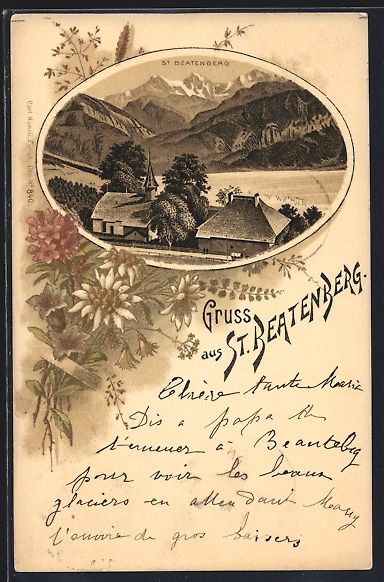 ST. BEATENBERG.
Gruss
aus ST. BEATENBERG.
Chère tante Maria
Dis a papa de
t'emener à Beatebg
pour voir les beaux
glaciers en attendant Many
t'envoie de gros baisers